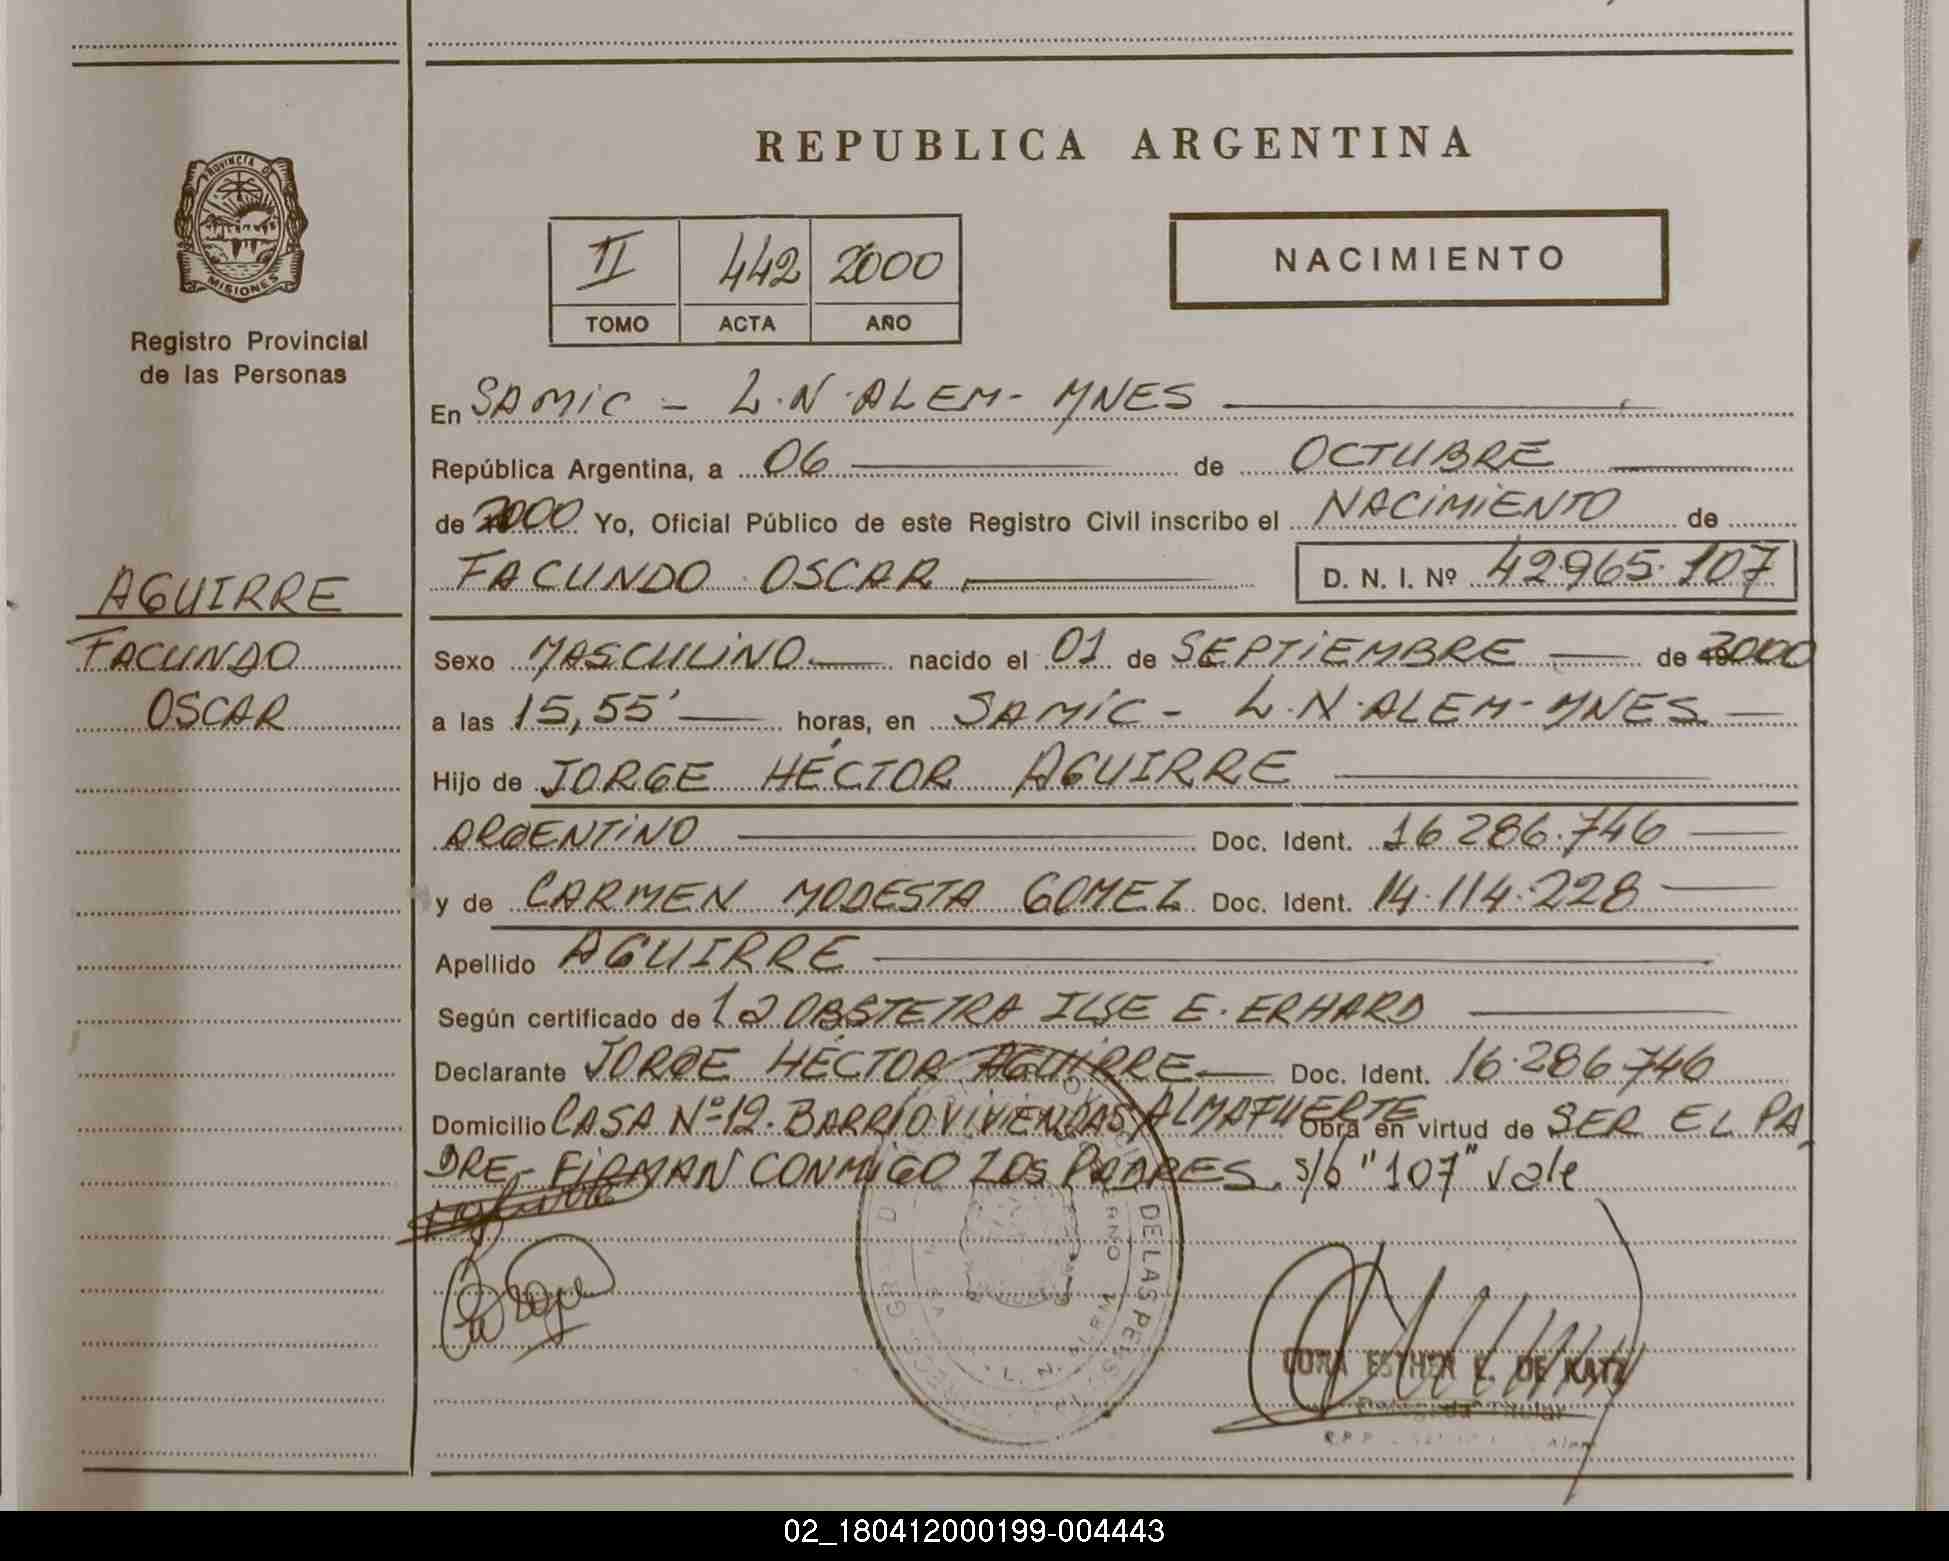 REPUBLICA ARGENTINA
PROVINCIA DE
MISIONES
Registro Provincial
de las Personas
II 442 2000
TOMO ACTA AÑO
NACIMIENTO
En SAMIC - L.N.ALEM- MNES
República Argentina, a 06 de OCTUBRE
de 2000 Yo, Oficial Público de este Registro Civil inscribo el NACIMIENTO de
FACUNDO OSCAR D. N. I. Nº 42.965.107
AGUIRRE
FACUNDO
OSCAR
Sexo MASCULINO nacido el 01 de SEPTIEMBRE de 2000
a las 15,55' horas, en SAMIC - L.N.ALEM-MNES
Hijo de JORGE HÉCTOR AGUIRRE
ARGENTINO Doc. Ident. 16.286.746
y de CARMEN MODESTA GOMEZ Doc. Ident. 14.114.228
Apellido AGUIRRE
Según certificado de la OBSTETRA ILSE E. ERHARD
Declarante JORGE HÉCTOR AGUIRRE Doc. Ident. 16.286.746
Domicilio CASA Nº 12. BARRIO VIVIENDAS ALMAFUERTE Obra en virtud de SER EL PA
DRE- FIRMAN CONMIGO LOS PADRES. s/b "107" vale
DE LAS PERS
L. N. ALEM
CORA ESTHER L. DE KATZ
Delegada Titular
02_180412000199-004443